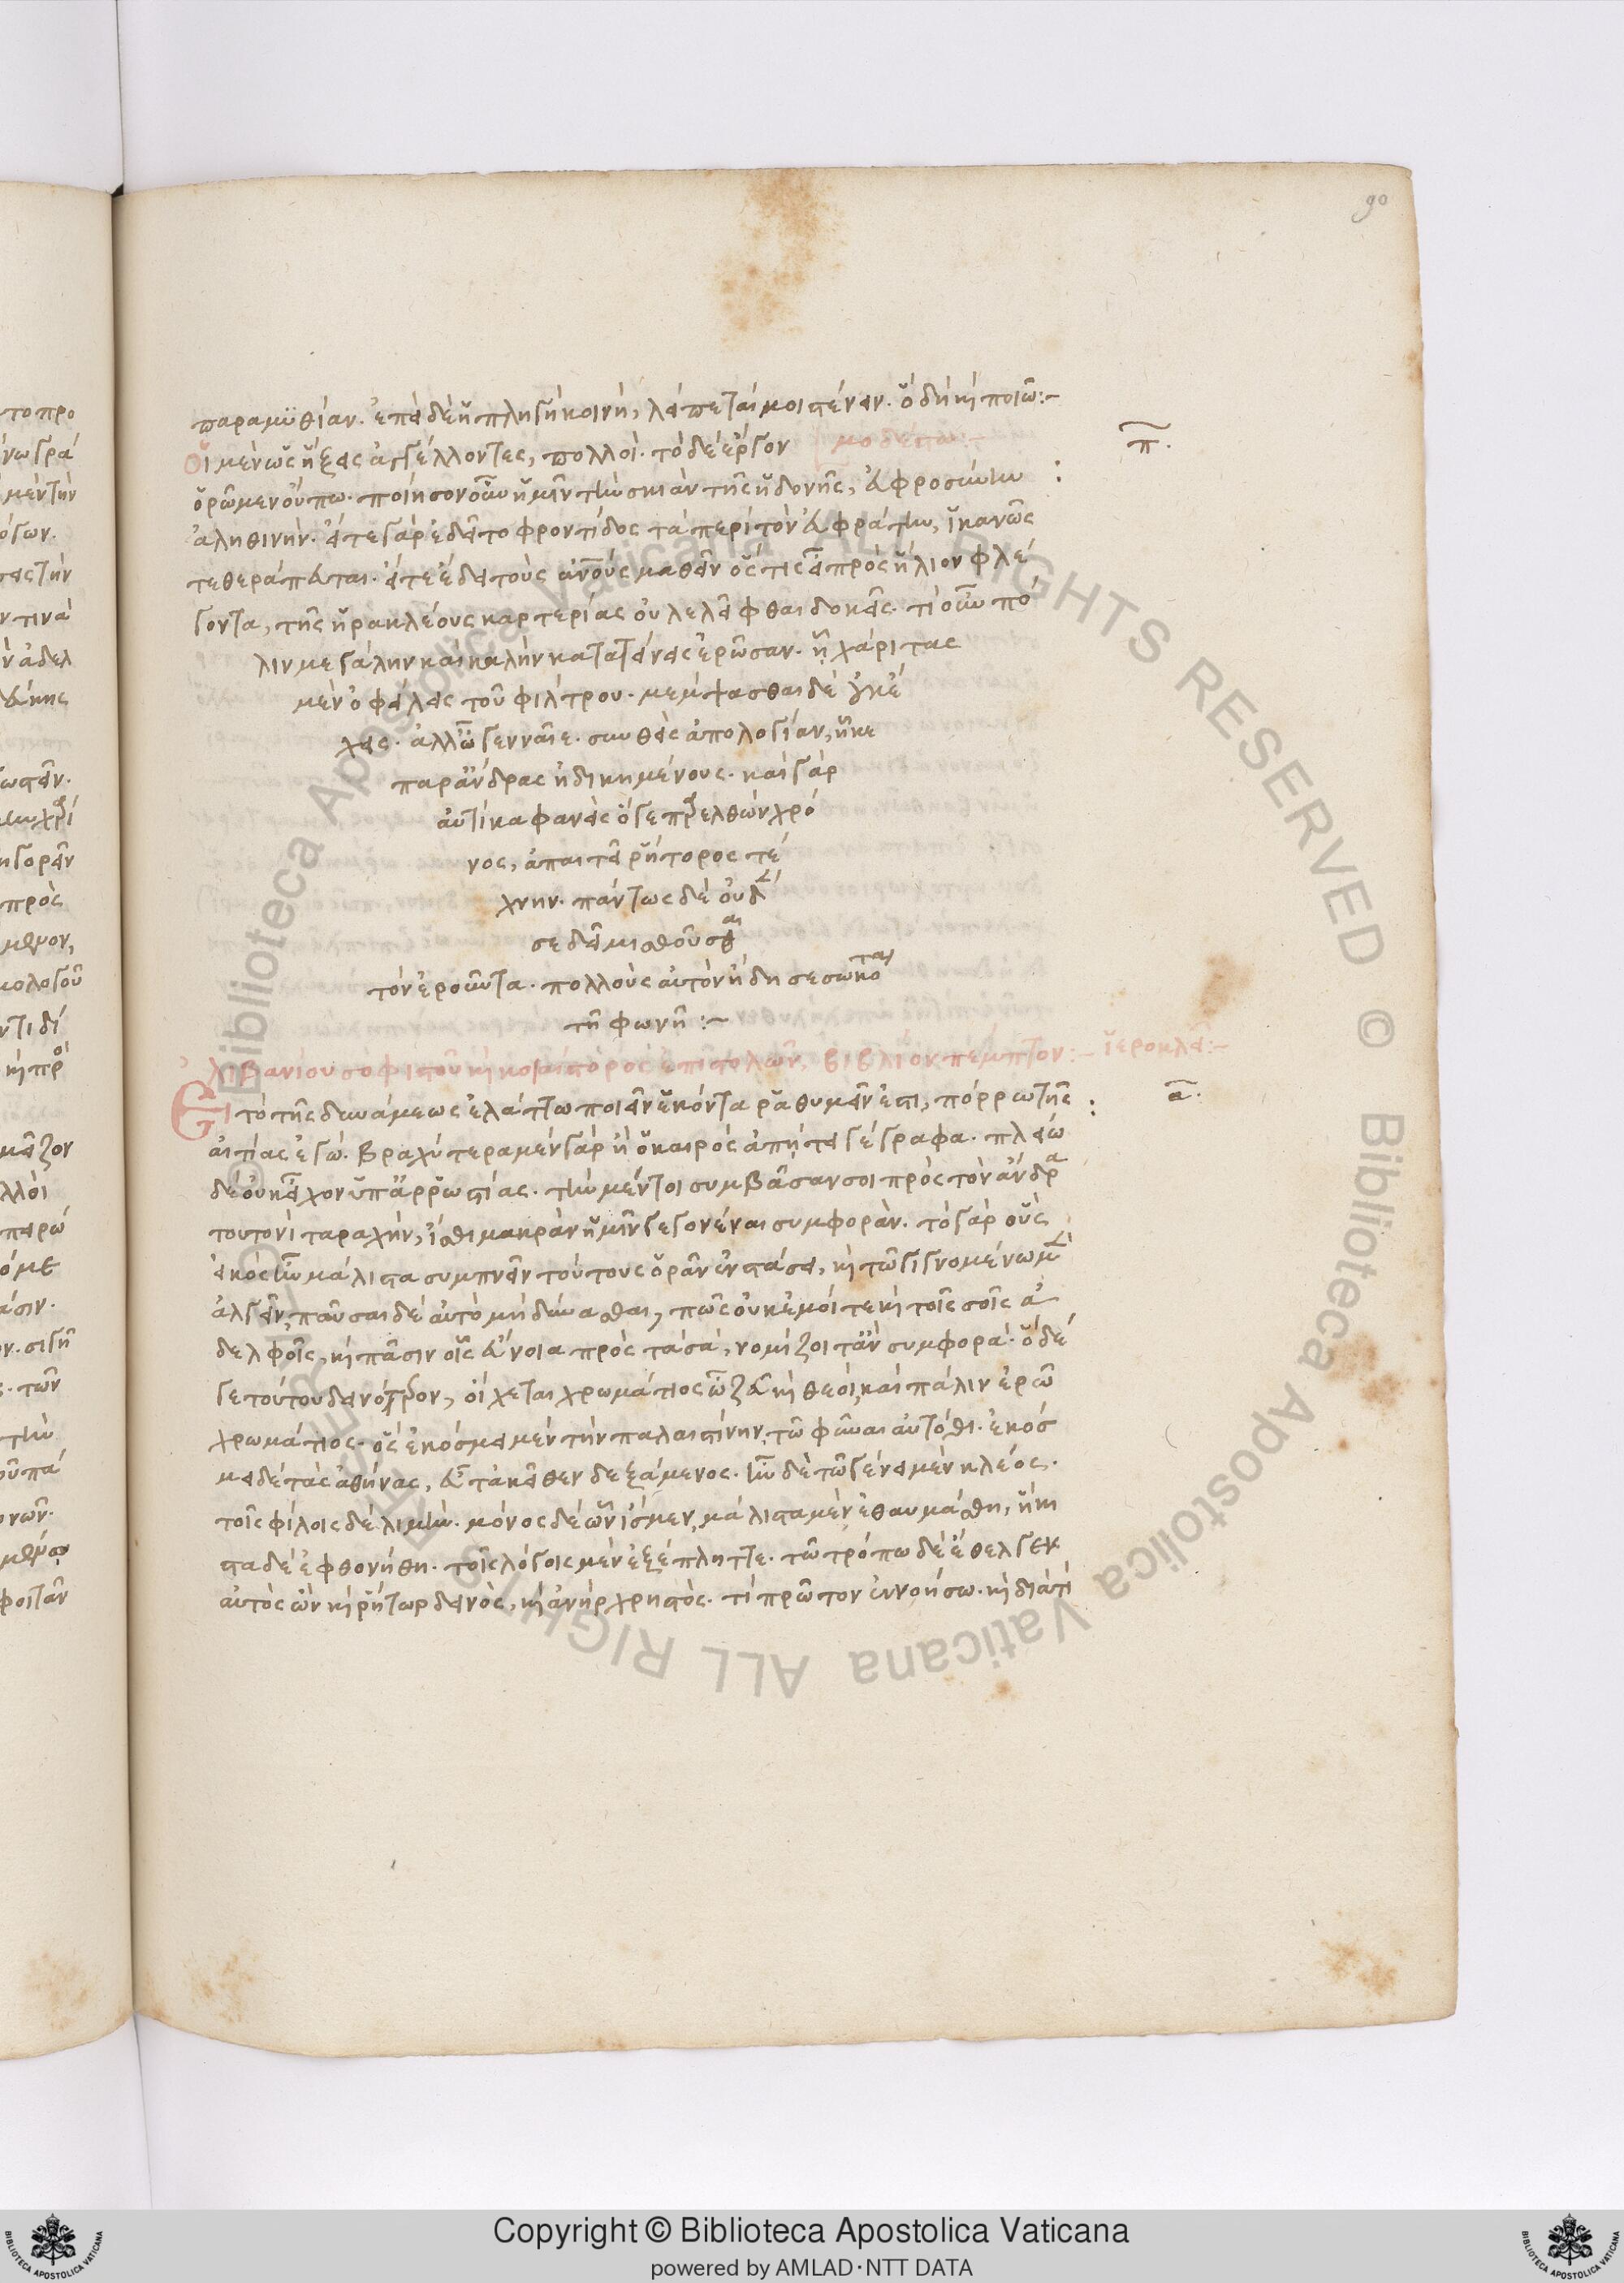 90
παραμυθίαν. ἐπεὶ δὲ ἡ πληγὴ κοινὴ, λείπεταί μοι στένειν. ὃ δὴ καὶ ποιῶ:-
Οἱ μὲν ὡς ἥξεις ἀγγέλλοντες, πολλοί. τὸ δὲ ἔργον μοδέστω:-
π.
ὁρῶμεν οὔπω. ποίησον οὖν ἡμῖν τὴν σκιὰν τῆς ἡδονῆς, εὐφροσύνην
ἀληθινήν. ἅ τε γὰρ ἐδεῖτο φροντίδος τὰ περὶ τὸν εὐφράτην, ἱκανῶς
τεθεράπευται. ἅ τε ἔδει τοὺς ἀνους μαθεῖν ὅστις εἶ πρὸς ἥλιον φλέ
γοντα, τῆς ἡρακλέους καρτερίας οὐ λελεῖφθαι δοκεῖς. τί οὖν πό
λιν μεγάλην καὶ καλὴν κατατείνεις ἐρῶσαν. ᾗ χάριτας
μὲν ὀφείλεις τοῦ φίλτρου. μέμψασθαι δὲ οὐκ ἔ
χεις. ἀλλ' ὦ γενναῖε. συνθεὶς ἀπολογίαν, ἧκε
παρ' ἄνδρας ἠδικημένους. καὶ γὰρ
αὐτίκα φανεὶς ὅ γε προελθὼν χρό
νος, ἀπαιτεῖ ῥήτορος τέ
χνην. πάντως δὲ οὐδέ
σε δεῖ μισθοῦσθαι
τὸν ἐροῦντα. πολλοὺς αὐτὸν ἤδη σεσωκότα
τῇ φωνῇ:-
λιβανίου σοφιστοῦ καὶ κοιαίστορος ἐπιστολῶν, βιβλίον πέμπτον:- ἱεροκλεῖ:-
Εἰ τὸ τῆς δυνάμεως ἐλάττω ποιεῖν ἑκόντα ῥαθυμεῖν ἐστι, πόρρω τῆς
α.
αἰτίας ἐγώ. βραχύτερα μὲν γὰρ ἢ ὁ καιρὸς ἀπῄτει γέγραφα. πλείω
δὲ οὐκ εἶχον ὑπ' ἀρρωστίας. τὴν μέντοι συμβᾶσαν σοι πρὸς τὸν ἄνδρα
τουτονὶ ταραχὴν, ἴσθι μακρὰν ἡμῖν γεγονέναι συμφοράν. τὸ γὰρ οὓς
εἰκὸς ἦν μάλιστα συμπνεῖν τούτους ὁρᾶν ἐν στάσει, καὶ τῶν γιγνομένων μὲν
ἀλγεῖν, παῦσαι δὲ αὐτὸ μὴ δύνασθαι, πῶς οὐκ ἐμοί τε καὶ τοῖς σοῖς ἀ
δελφοῖς, καὶ πᾶσιν οἷς εὔνοια πρὸς τὰ σὰ, νομίζοιτ' ἂν συμφορά. ὃ δέ
γε τούτου δεινότερον, οἴχεται χρωμάτιος ὦ ζεῦ καὶ θεοί, καὶ πάλιν ἐρῶ
χρωμάτιος. ὃς ἐκόσμει μὲν τὴν παλαιστίνην, τῷ φῦναι αὐτόθι. ἐκόσ
μει δὲ τὰς ἀθήνας, εὖ τἀκεῖθεν δεξάμενος. ἦν δὲ τῷ γένει μὲν κλέος.
τοῖς φίλοις δὲ λιμήν. μόνος δὲ ὧν ἴσμεν, μάλιστα μὲν ἐθαυμάσθη, ἥκι
στα δὲ ἐφθονήθη. τοῖς λόγοις μὲν ἐξέπληττε. τῷ τρόπῳ δὲ ἔθελγεν
αὐτὸς ὢν καὶ ῥήτωρ δεινὸς, καὶ ἀνὴρ χρηστός. τί πρῶτον ἐννοήσω. καὶ διὰ τί
Copyright © Biblioteca Apostolica Vaticana
powered by AMLAD·NTT DATA